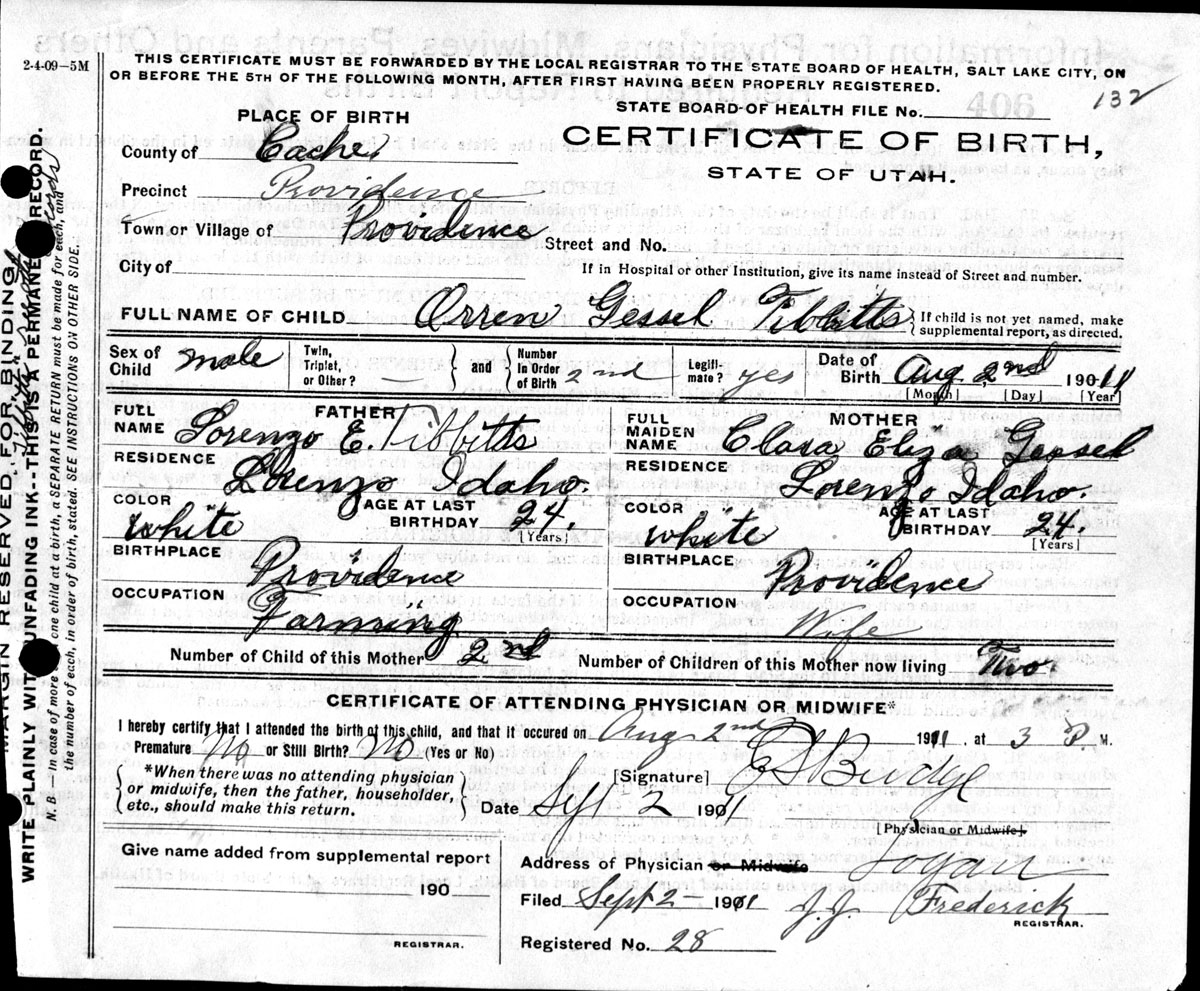 2-4-09—5M
THIS CERTIFICATE MUST BE FORWARDED BY THE LOCAL REGISTRAR TO THE STATE BOARD OF HEALTH, SALT LAKE CITY, ON
OR BEFORE THE 5TH OF THE FOLLOWING MONTH, AFTER FIRST HAVING BEEN PROPERLY REGISTERED.
406
132
STATE BOARD OF HEALTH FILE No.
PLACE OF BIRTH
CERTIFICATE OF BIRTH,
STATE OF UTAH.
County of Cache
Precinct Providence
Town or Village of Providence
Street and No.
City of
If in Hospital or other Institution, give its name instead of Street and number.
FULL NAME OF CHILD Orren Gessel Tibbitts { If child is not yet named, make supplemental report, as directed.
Sex of Child male
Twin, Triplet, or Other? —
} and {
Number in Order of Birth 2nd
Legiti-mate? yes
Date of Birth Aug 2nd 190 11
[Month] [Day] [Year]
FATHER
FULL NAME Lorenzo E. Tibbitts
RESIDENCE Lorenzo Idaho.
COLOR white
AGE AT LAST BIRTHDAY 24.
[Years]
BIRTHPLACE Providence
OCCUPATION Farming
MOTHER
FULL MAIDEN NAME Clara Eliza Gessel
RESIDENCE Lorenzo Idaho.
COLOR white
AGE AT LAST BIRTHDAY 24.
[Years]
BIRTHPLACE Providence
OCCUPATION Wife
Number of Child of this Mother 2nd
Number of Children of this Mother now living Two
CERTIFICATE OF ATTENDING PHYSICIAN OR MIDWIFE*
I hereby certify that I attended the birth of this child, and that it occured on Aug 2nd 1911, at 3 P. M.
Premature No or Still Birth? No (Yes or No)
{ *When there was no attending physician
or midwife, then the father, householder,
etc., should make this return. }
[Signature] E S Budge
Date Sept 2 1911
[Physician or Midwife]
Give name added from supplemental report
190
REGISTRAR.
Address of Physician or Midwife Logan
Filed Sept 2 - 1911 J. J. Frederick
REGISTRAR.
Registered No. 28
MARGIN RESERVED FOR BINDING
WRITE PLAINLY WITH UNFADING INK---THIS IS A PERMANENT RECORD.
N. B. In case of more than one child at a birth, a SEPARATE RETURN must be made for each, and
the number of each, in order of birth, stated. SEE INSTRUCTIONS ON OTHER SIDE.